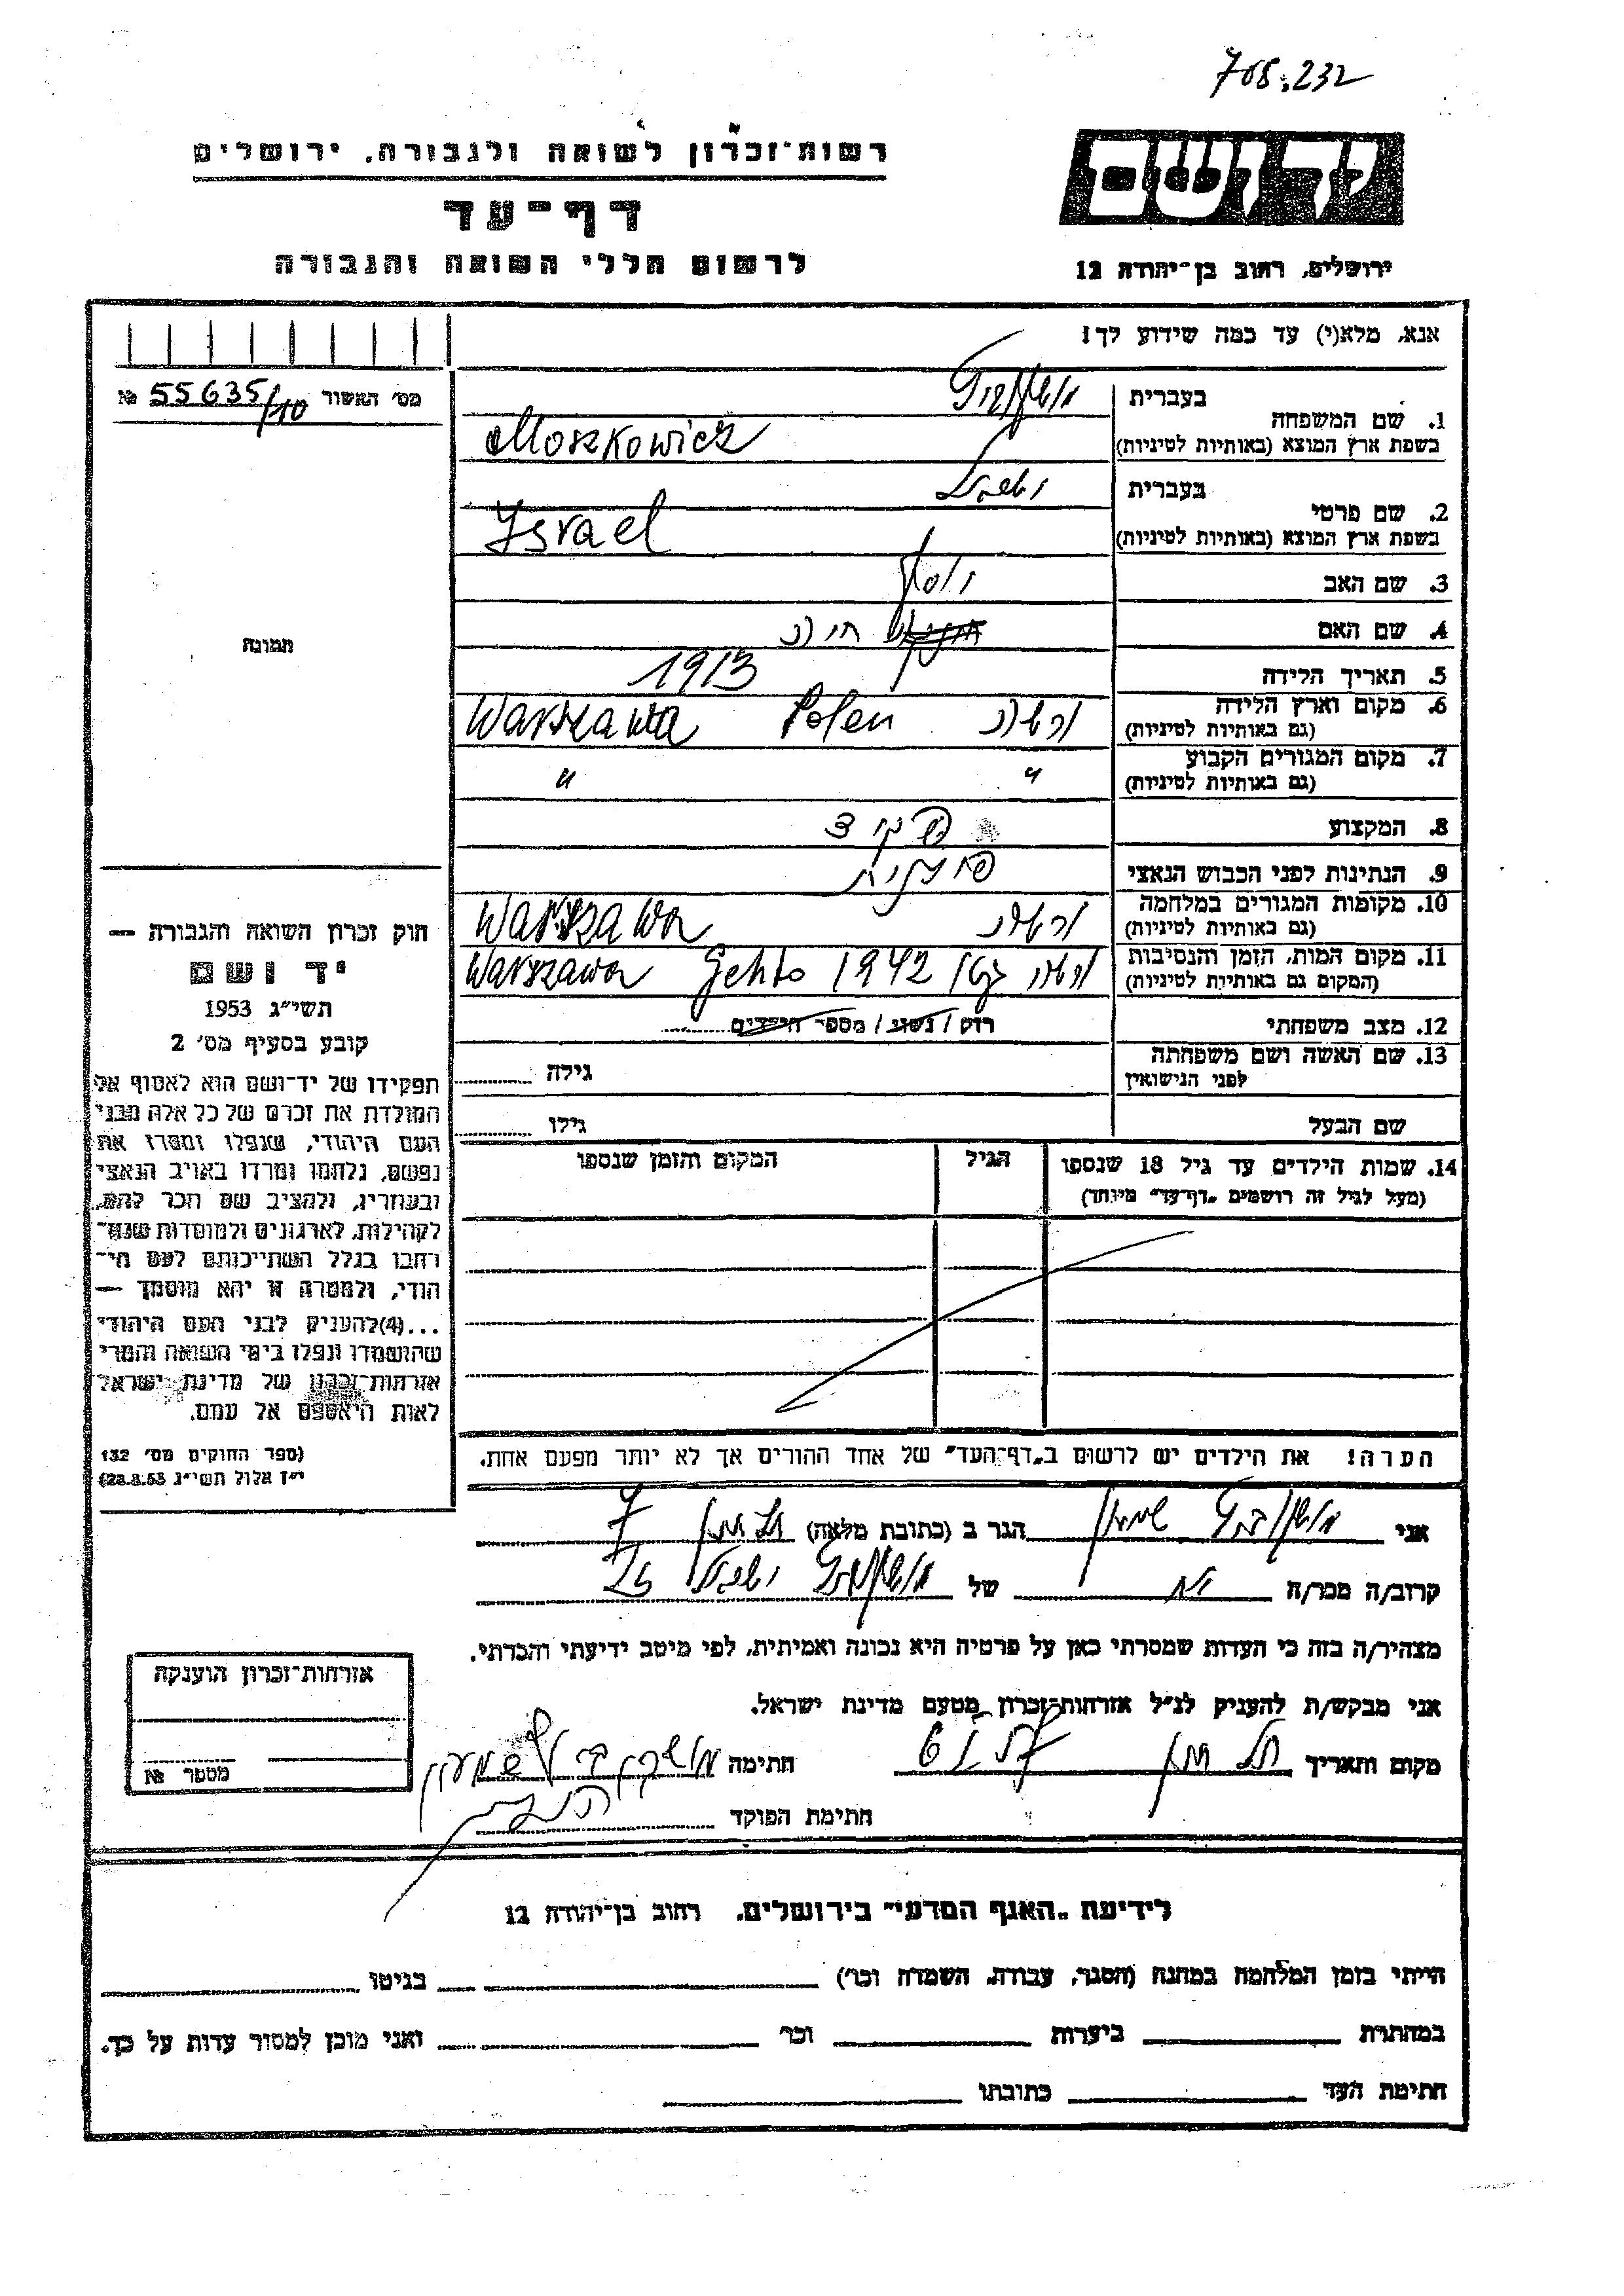 708.232
רשות־זכרון לשואה ולגבורה, ירושלים
יד ושם
דף־עד
לרשום חללי השואה והגבורה
ירושלים, רחוב בן־יהודה 12
אנא, מלא(י) עד כמה שידוע לך!
מס' האשור 55635/10 №
בעברית מושקוביץ
1. שם המשפחה
בשפת ארץ המוצא (באותיות לטיניות) Moszkowicz
בעברית ישראל
2. שם פרטי
בשפת ארץ המוצא (באותיות לטיניות) Israel
3. שם האב יוסף
4. שם האם חנה
5. תאריך הלידה 1913
6. מקום וארץ הלידה
(גם באותיות לטיניות) ורשה Polen Warszawa
7. מקום המגורים הקבוע
(גם באותיות לטיניות) " "
8. המקצוע פקיד
9. הנתינות לפני הכבוש הנאצי פולנית
10. מקומות המגורים במלחמה
(גם באותיות לטיניות) ורשה Warszawa
11. מקום המות, הזמן והנסיבות
(המקום גם באותיות לטיניות) ורשה גטו 1942 Warszawa Gehto
12. מצב משפחתי רווק / נשוי / מספר הילדים
13. שם האשה ושם משפחתה
לפני הנישואין גילה
שם הבעל גילו
14. שמות הילדים עד גיל 18 שנספו הגיל המקום והזמן שנספו
(מעל לגיל זה רושמים "דף־עד" מיוחד)
תמונה
חוק זכרון השואה והגבורה —
יד ושם
תשי"ג 1953
קובע בסעיף מס' 2
תפקידו של יד־ושם הוא לאסוף אל
המולדת את זכרם של כל אלה מבני
העם היהודי, שנפלו ומסרו את
נפשם, נלחמו ומרדו באויב הנאצי
ובעוזריו, ולהציב שם וזכר להם,
לקהילות, לארגונים ולמוסדות שנח־
רבו בגלל השתייכותם לעם הי־
הודי, ולמטרה זו יהא מוסמך —
...(4)להעניק לבני העם היהודי
שהושמדו ונפלו בימי השואה והמרי
אזרחות־זכרון של מדינת ישראל
לאות היאספם אל עמם.
(ספר החוקים מס' 132
י"ז אלול תשי"ג 28.8.53)
הערה! את הילדים יש לרשום ב"דף־העד" של אחד ההורים אך לא יותר מפעם אחת.
אני מושקוביץ שמעון הגר ב (כתובת מלאה)
קרוב/ה מכר/ה אח של מושקוביץ ישראל ז"ל
מצהיר/ה בזה כי העדות שמסרתי כאן על פרטיה היא נכונה ואמיתית, לפי מיטב ידיעתי והכרתי.
אני מבקש/ת להעניק לנ"ל אזרחות־זכרון מטעם מדינת ישראל.
מקום ותאריך חתימה מושקוביץ שמעון
חתימת הפוקד
אזרחות־זכרון הוענקה
מספר №
לידיעת "האגף המדעי" בירושלים, רחוב בן־יהודה 12
הייתי בזמן המלחמה במחנה (הסגר, עבודה, השמדה וכו') בגיטו
במחתרת ביערות וכו' ואני מוכן למסור עדות על כך.
חתימת העד כתובתו